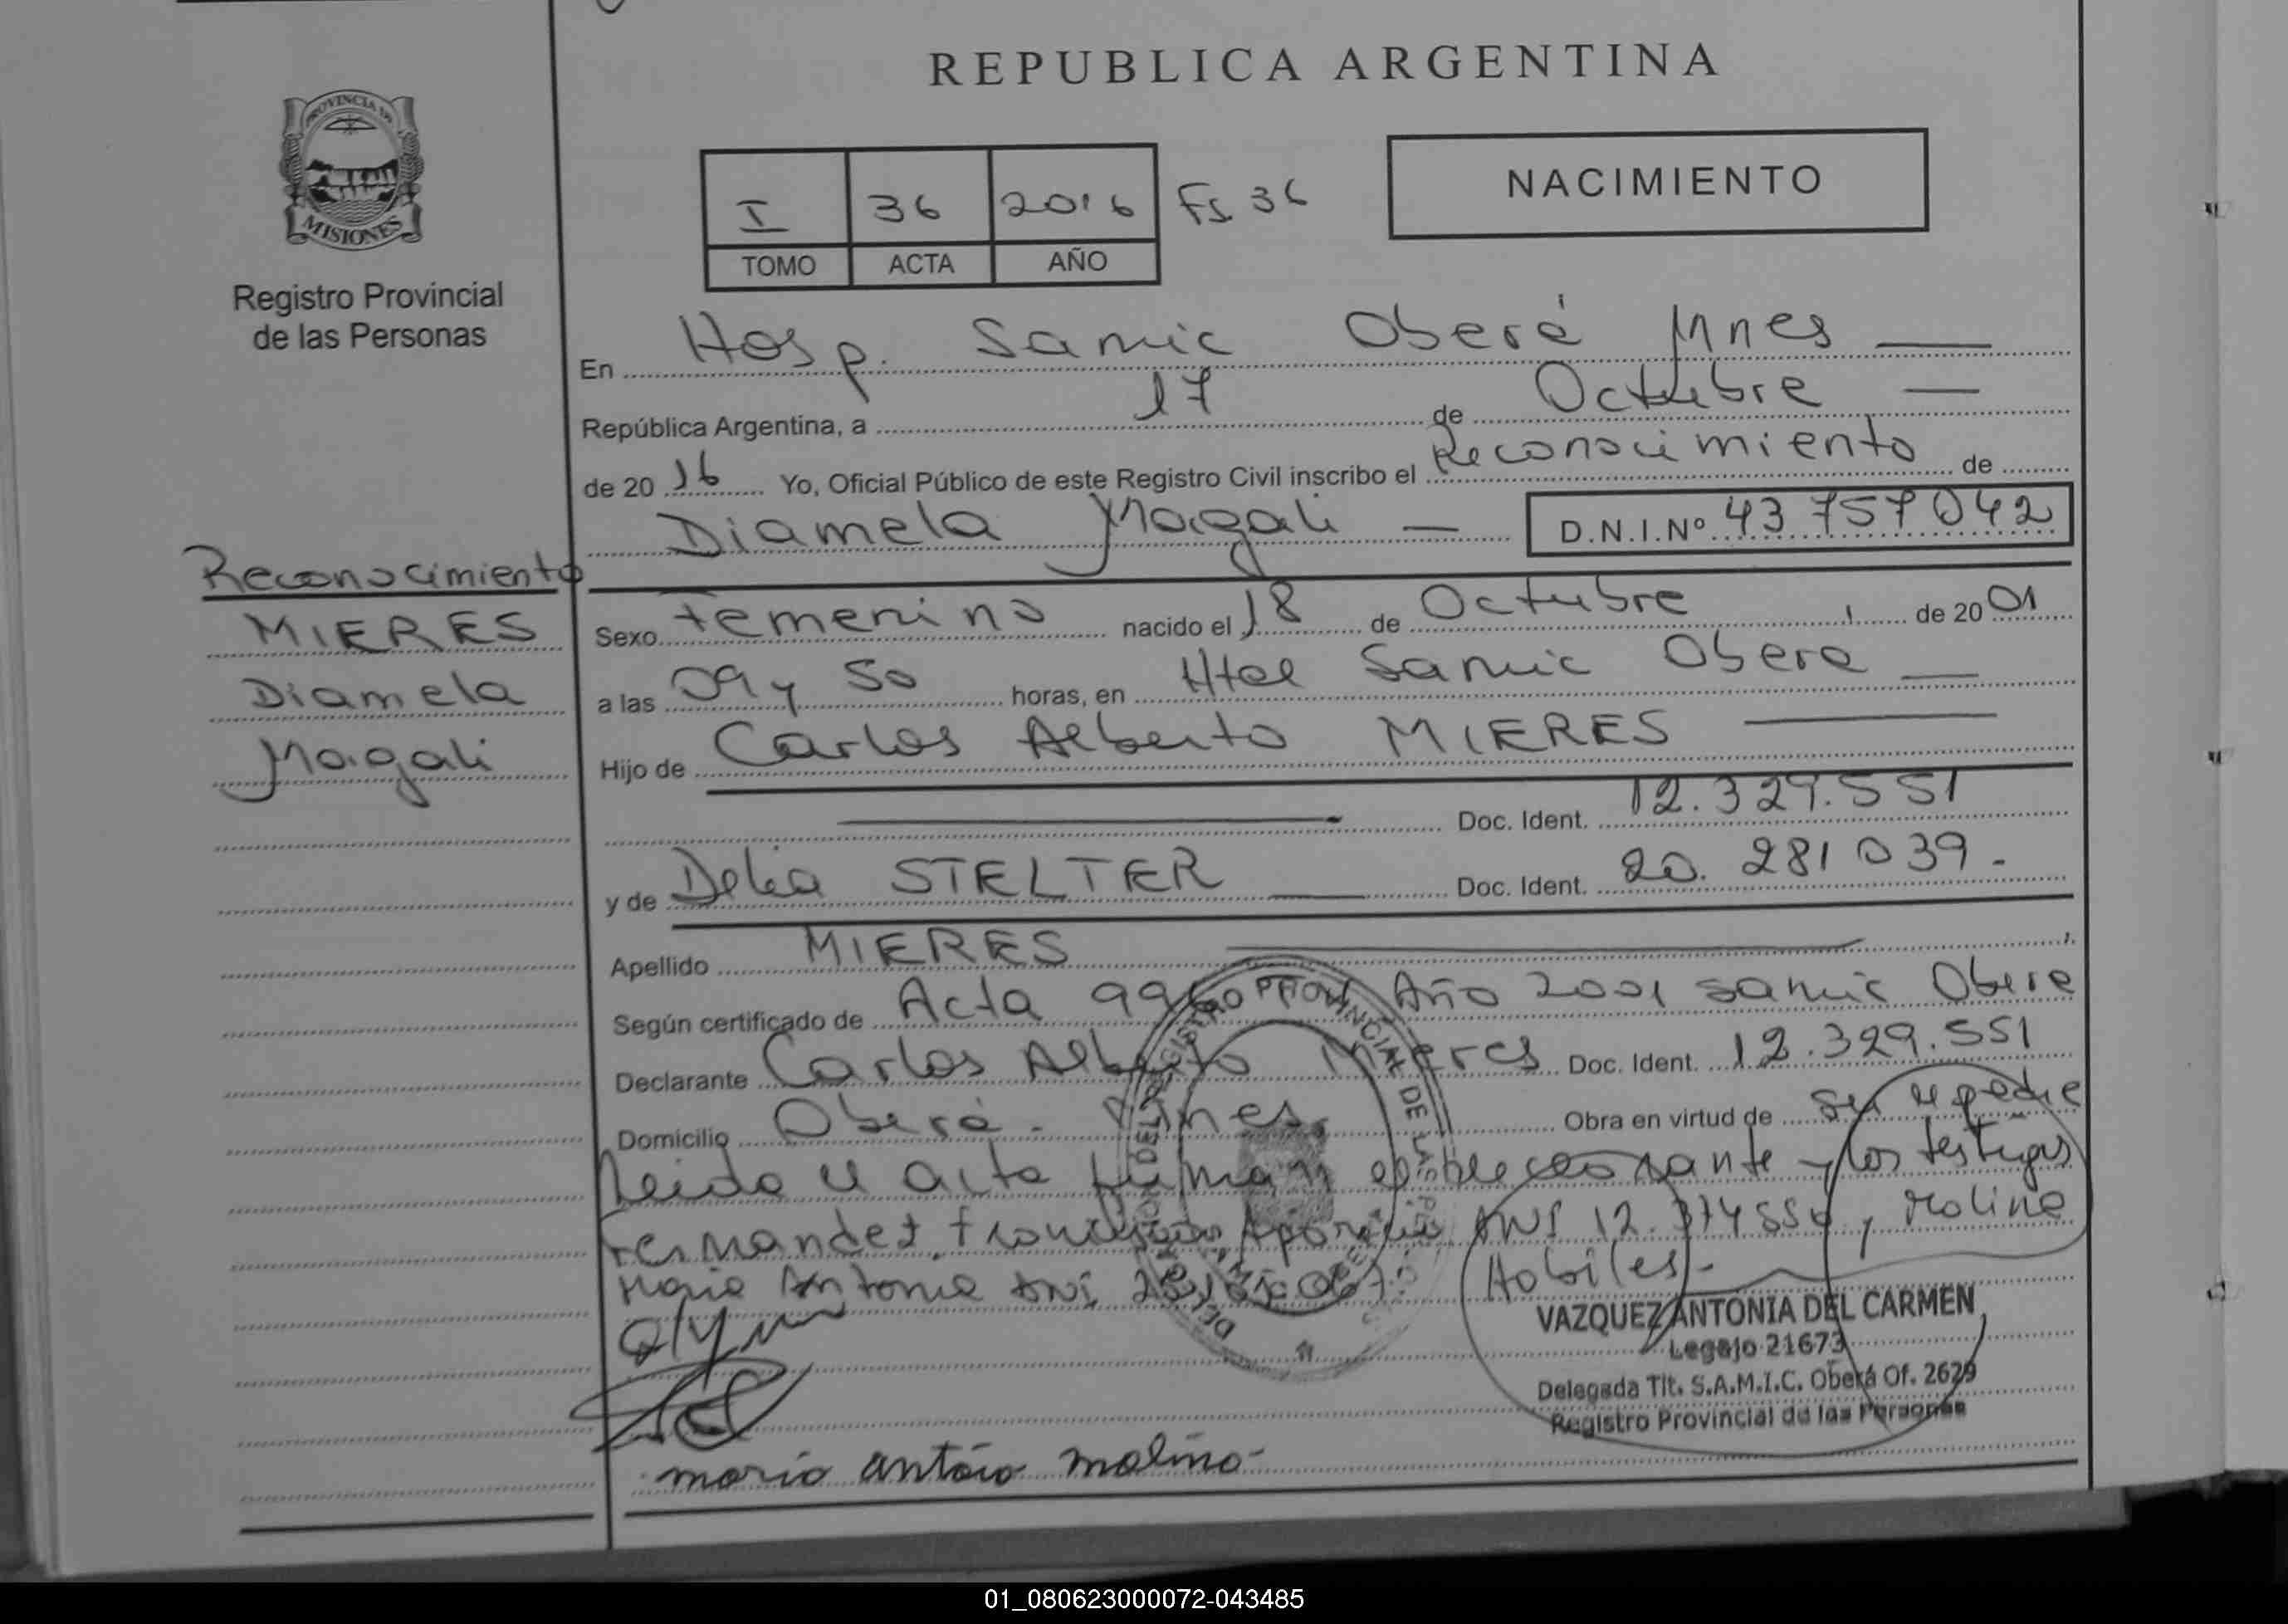 REPUBLICA ARGENTINA
PROVINCIA DE
MISIONES
Registro Provincial
de las Personas
I 36 2016 Fs 36
TOMO ACTA AÑO
NACIMIENTO
En Hosp. Samic Oberá Mnes
República Argentina, a 17 de Octubre
de 20 16 Yo, Oficial Público de este Registro Civil inscribo el Reconocimiento de
Diamela Magali D.N.I.Nº 43 757 042
Reconocimiento
MIERES
Diamela
Magali
Sexo Femenino nacido el 18 de Octubre de 20 01
a las 09 y 50 horas, en Htal Samic Obera
Hijo de Carlos Alberto MIERES
Doc. Ident. 12.329.551
y de Delia STELTER Doc. Ident. 20. 281 039.-
Apellido MIERES
Según certificado de Acta Año 2001 Samic Obera
Declarante Carlos Alberto Mieres Doc. Ident. 12.329.551
Domicilio Oberá - Mnes Obra en virtud de
Leida el acta firman el y los testigos
Fernandez, DNI Molina
Maria Antonia DNI Habiles.-
VAZQUEZ ANTONIA DEL CARMEN
Legajo 21673
Delegada Tit. S.A.M.I.C. Oberá Of. 2629
Registro Provincial de las Personas
maria antoia molina
01_080623000072-043485